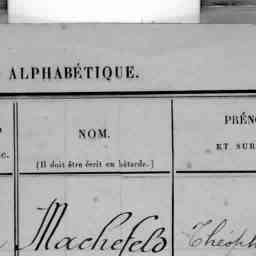 ALPHABÉTIQUE.
NOM.
(Il doit être écrit en bâtarde.)
PRÉNO
ET SUR
c.
Machefeld
Théoph